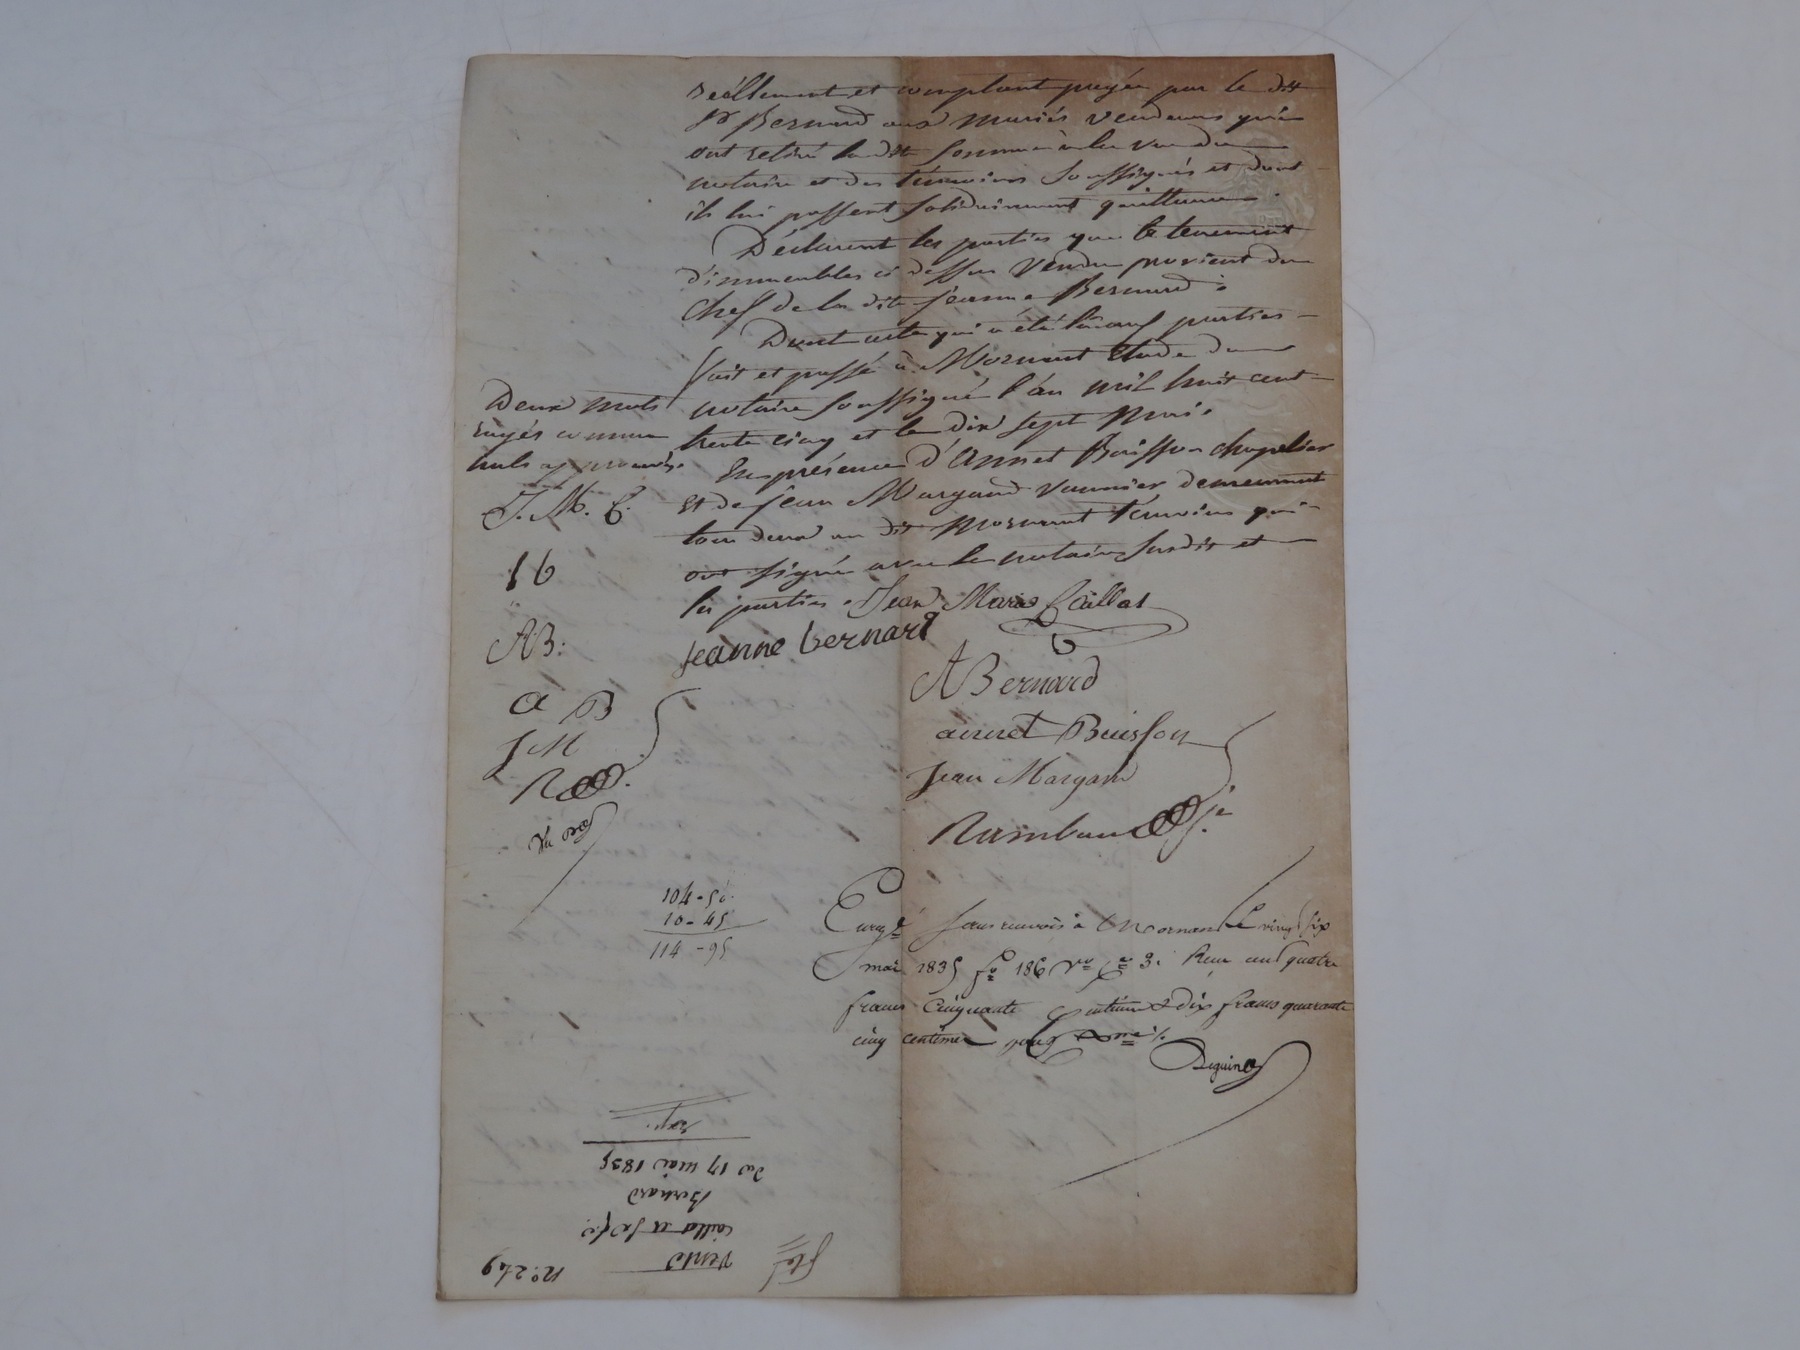 réellement et comptant payée par le dit
Sr Bernard aux mariés vendeurs qui
ont retiré la dite somme à la vue du
notaire et des témoins soussignés et dont
ils lui passent solidairement quittance.
Déclarent les parties que le tenement
d'immeubles ci dessus vendu provient du
chef de la dite Jeanne Bernard.
Dont acte qui a été lu aux parties
fait et passé à Mornant Etude du
notaire soussigné l'an mil huit cent
trente cinq et le dix sept Mai.
En présence d'Annet Buisson chapelier
et de Jean Margand vannier demeurant
tous deux au dit Mornant témoins qui
ont signé avec le notaire susdit et
les parties. Jean Marie Caillat
Deux mots
rayés comme
nuls approuvés.
J. M. C.
J b
AB:
a B
J M
R
Jeanne bernard
A Bernard
annet Buisson
Jean Margand
Rambaud
104-50
10-45
114-95
Enregté sans renvois à Mornant le vingt six
mai 1835 fo 186 Vo Ce 3. Reçu cent quatre
francs cinquante centimes & dix francs quarante
cinq centimes pour
Deguine
No. 249
Vente
Bernard
du 17 mai 1835
exp.